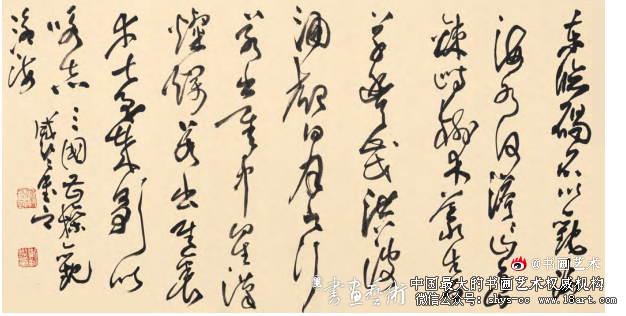 东临碣石以觀滄
海水何澹澹山岛
竦峙樹木叢生百
草豐茂洪波
涌起日月之行
若出其中星漢
燦爛若出其裏
幸甚至哉歌以
咏志三國曹操觀
滄海
@书画艺术
書畫藝術
中国最大的书画艺术权威机构
微信公众号：shys-cc www.18art.com